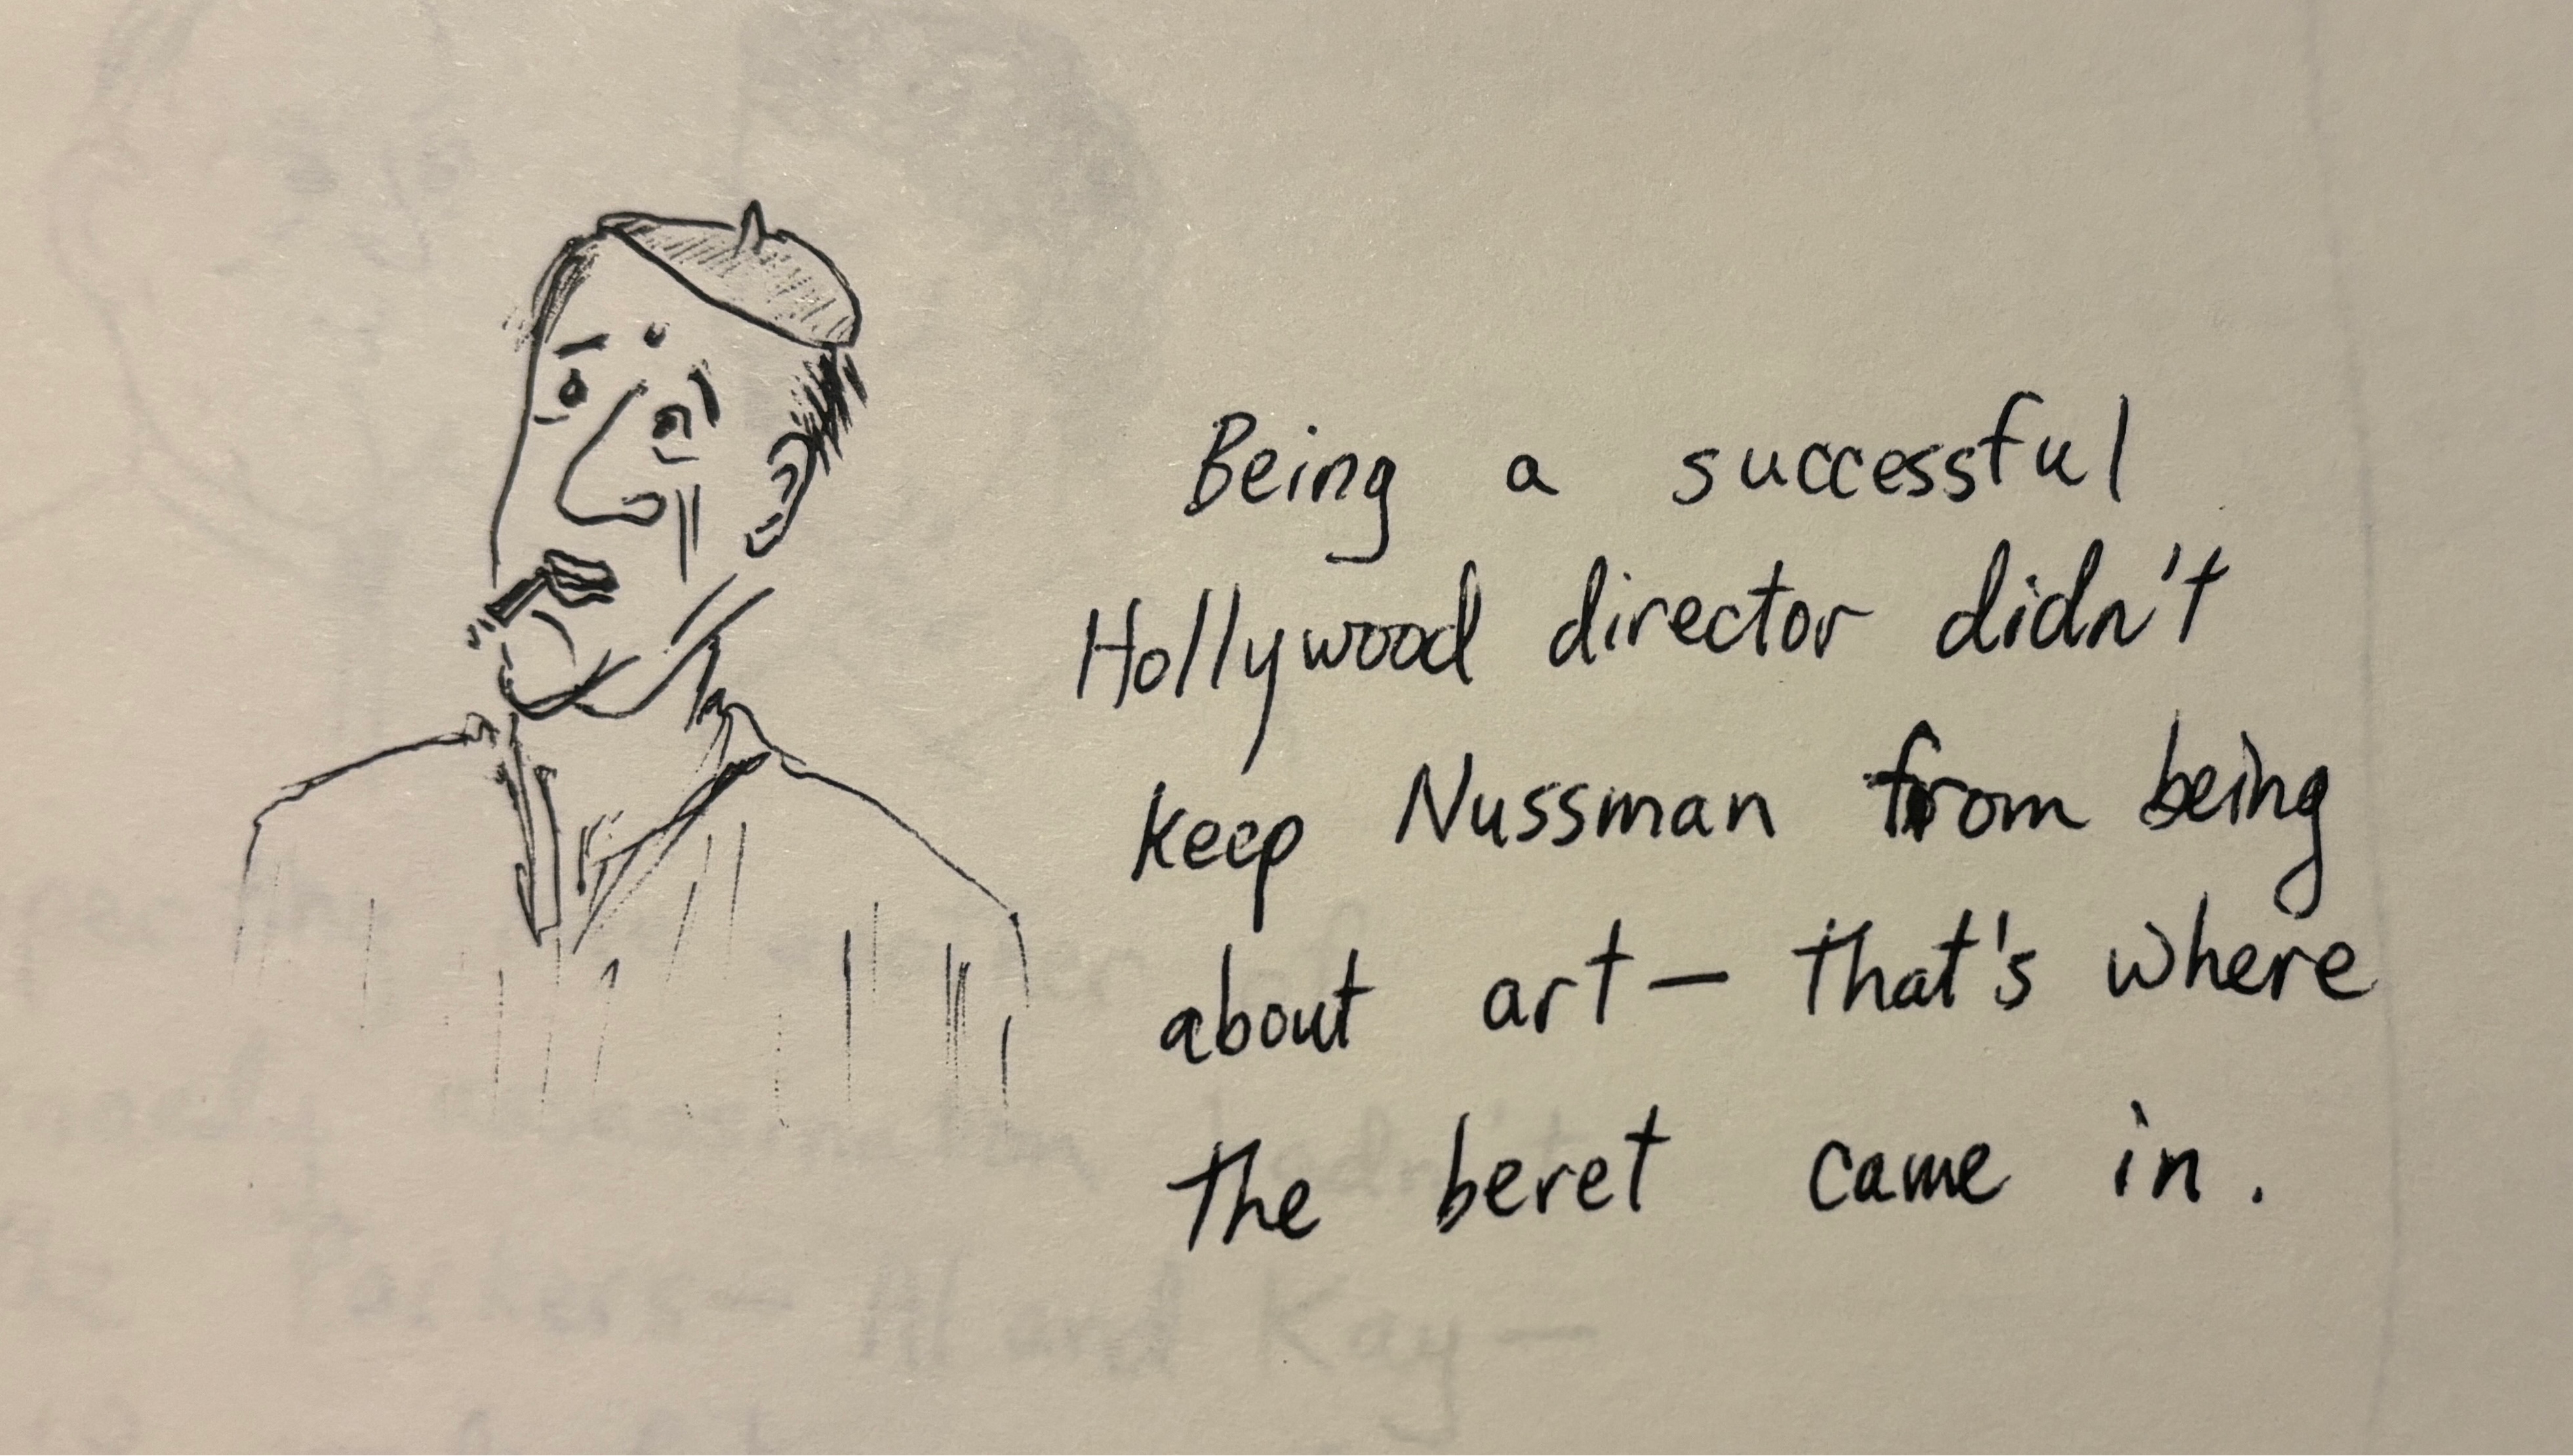 Being a successful
Hollywood director didn't
keep Nussman from being
about art — that's where
the beret came in.
Al and Kay —